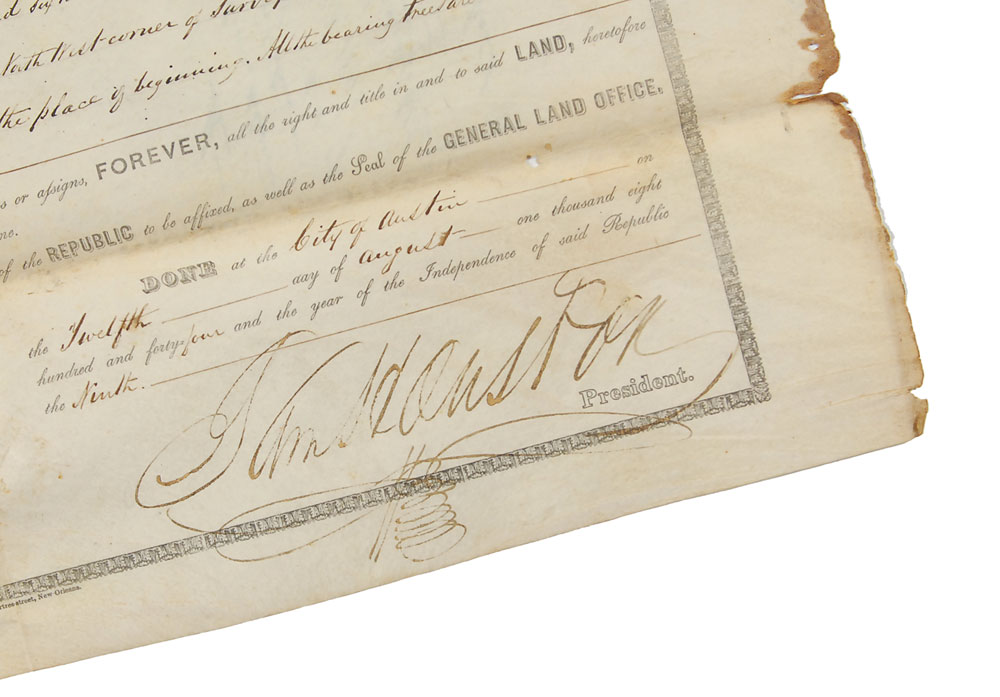 North West corner of Survey
the place of beginning. All the bearing trees are
FOREVER, all the right and title in and to said LAND, heretofore
s or assigns,
of the REPUBLIC to be affixed, as well as the Seal of the GENERAL LAND OFFICE.
DONE at the City of Austin on
the Twelfth day of August one thousand eight
hundred and forty-four and the year of the Independence of said Republic
the Ninth.
Sam Houston
President.
street, New Orleans.